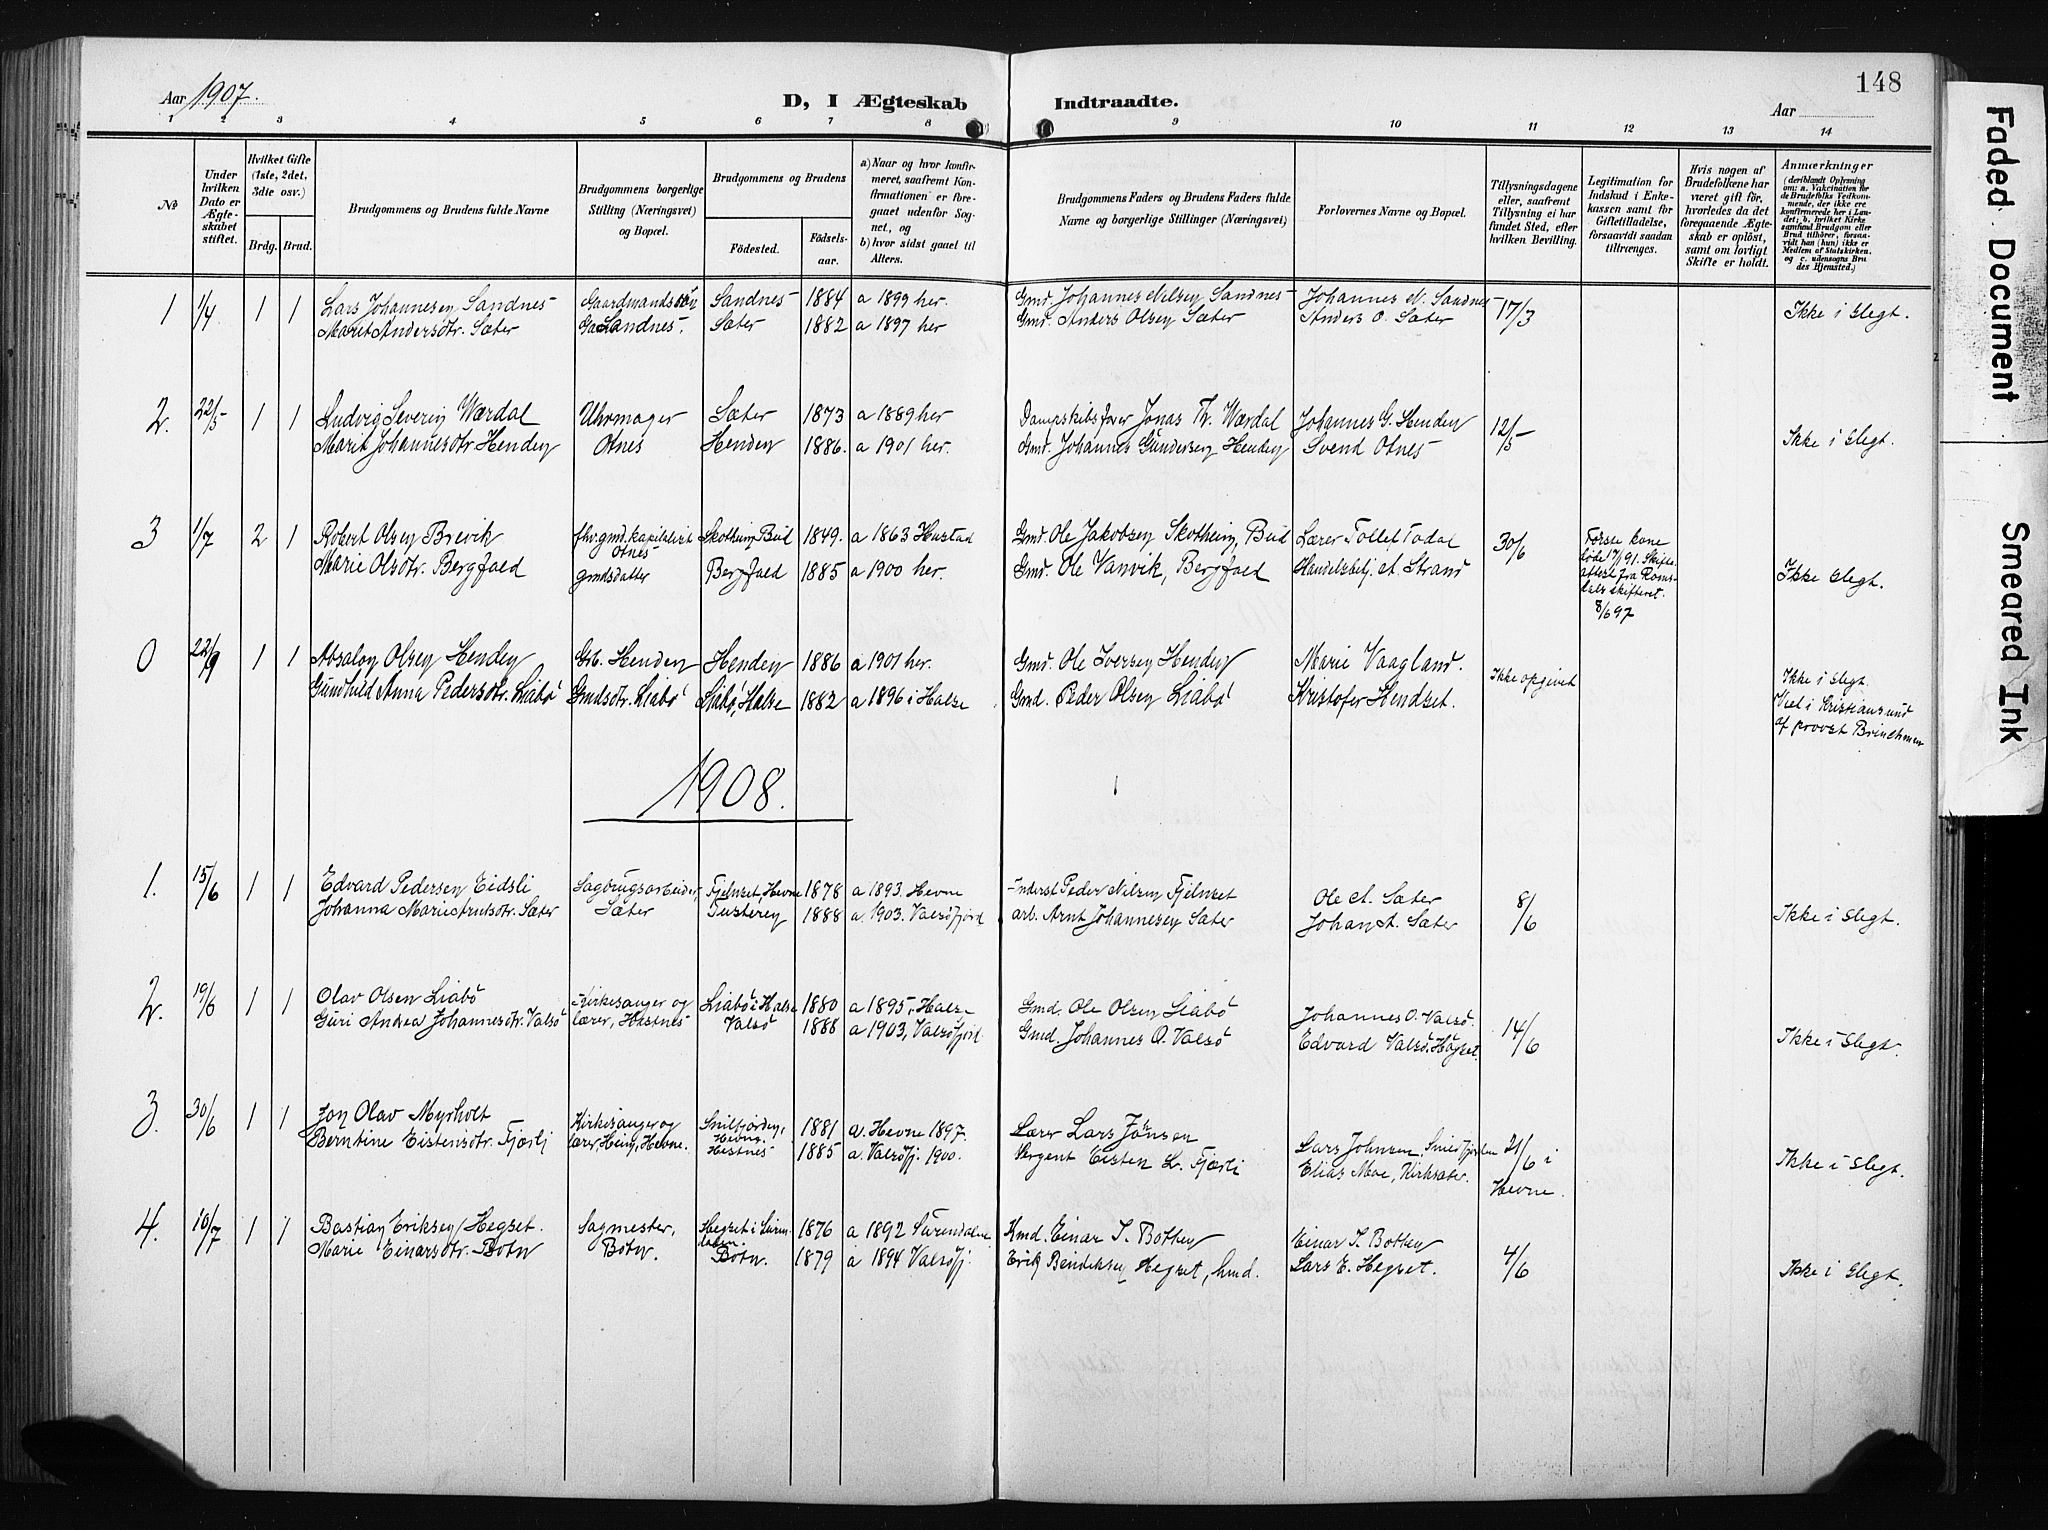 148
Aar 1907.
D, I Ægteskab Indtraadte.
Aar
1 2 3 4 5 6 7 8 9 10 11 12 13 14
No
Under hvilken Dato er Ægteskabet stiftet.
Hvilket Gifte (1ste, 2det, 3die osv.)
Brdg. Brud.
Brudgommens og Brudens fulde Navne
Brudgommens borgerlige Stilling (Næringsvei) og Bopæl.
Brudgommens og Brudens
Födested. Födselsaar.
a) Naar og hvor konfirmeret, saafremt Konfirmationen er foregaaet udenfor Sognet, og
b) hvor sidst gaaet til Alters.
Brudgommens Faders og Brudens Faders fulde Navne og borgerlige Stillinger (Næringsvei)
Forlovernes Navne og Bopæl.
Tillysningsdagene eller, saafremt Tillysning ei har fundet Sted, efter hvilken Bevilling.
Legitimation for Indskud i Enkekassen samt for Giftetilladelse, forsaavidt saadan tiltrænges.
Hvis nogen af Brudefolkene har været gift før, hvorledes da det foregaaende Ægteskab er oplöst, samt om lovligt Skifte er holdt.
Anmærkninger
(deriblandt Oplysning om: a. Vakcination for de Brudefolks Vedkommende, der ikke ere konfirmerede her i Landet; b. hvilket Kirkesamfund Brudgom eller Brud tilhører, forsaavidt han (hun) ikke er Medlem af Statskirken, og c. udensogns Brudes Hjemsted.)
1 1/4 1 1 Lars Johannesen Sandnes Gaardmandssön Sandnes 1884 a 1899 her. Gmd. Johannes Nilsen Sandnes Johannes N. Sandnes 17/3 Ikke i slegt.
Marit Andersdtr. Sæter Sandnes. Sæter 1882 a 1897 her Gmd. Anders Olsen Sæter Anders O. Sæter
2. 22/5 1 1 Ludvig Severin Wærdal Uhrmager Sæter 1873 a 1889 her Dampskibsfører Jonas Th. Wærdal Johannes G. Henden 12/5 Ikke i slegt.
Marit Johannesdtr. Henden Otnes Henden 1886. a 1901 her. Gmd. Johannes Gundersen Henden Svend Otnes
3 1/7 2 1 Robert Olsen Brevik fhv. gmd. kapitalist Otnes Skotheim, Bud 1849. a 1863 Hustad Gmd. Ole Jakobsen Skotheim, Bud Lærer Tollef Todal 30/6 Første kone døde 17/1 91. Skifteattest fra Romsdals skifteret. 8/6 97
Marie Olsdtr. Bergfald gmdsdatter Bergfald 1885 a 1900 her. Gmd. Ole Vanvik, Bergfald Handelsbetj. A. Strand Ikke slegt.
0 22/9 1 1 Absalon Olsen Henden Grb. Henden Henden 1886 a 1901 her. Gmd. Ole Iversen Henden Marie Vaagland. Ikke opgivet Ikke i slegt.
Gundhild Anna Pedersdtr. Liabö Gmdsdtr. Liabö Liabö, Halse 1882 a 1896 i Halse Gmd. Peder Olsen Liabö Kristofer Hendset. Viet i Kristiansund af provst Brinchman
1908.
1. 15/6 1 1 Edvard Pedersen Eidsli Sagbrugsarbeider, Fjelnset, Hevne 1878 a 1893. Hevne Inderst Peder Nilsen Fjelnset Ole A. Sæter 8/6 Ikke i slegt.
Johanna Marie Arntsdtr. Sæter Sæter Tusteren 1888 a. 1903. Valsöfjord arb. Arnt Johannesen Sæter Johan A. Sæter
2. 19/6 1 1 Olav Olsen Liabö Kirkesanger og Liabö i Halse 1880 a 1895, Halse Gmd. Ole Olsen Liabö Johannes O. Valsö. 14/6 Ikke i slegt.
Guri Andrea Johannesdtr. Valsö lærer, Hestnes Valsö 1888 a 1903, Valsöfjord. Gmd. Johannes O. Valsö Edvard Valsö, Högset.
3. 30/6 1 1 Jon Olav Myrholt Kirkesanger og Snilfjorden, Hevne. 1881 a. Hevne 1897. Lærer Lars Jönsen Lars Johnsen, Snilfjorden 21/6 i Hevne. Ikke i slegt.
Berntine Eistensdtr. Fjærli lærer, Heim, Hevne. Hestnes 1885 a. Valsöfj. 1900. Sergent Eisten L. Fjærli Elias Moe, Kirksæter.
4. 10/7 1 1 Bastian Eriksen Hegset. Sagmester, Hegset i Surendalen 1876 a 1892 Surendalen Kmd. Einar I. Botten Einar I. Botten 4/6 Ikke i slegt.
Marie Einarsdtr. Botn Botn. Botn. 1879 a 1894 Valsöfj. Erik Bendiksen Hegset, hmd. Lars E. Hegset.
Faded Document
Smeared Ink